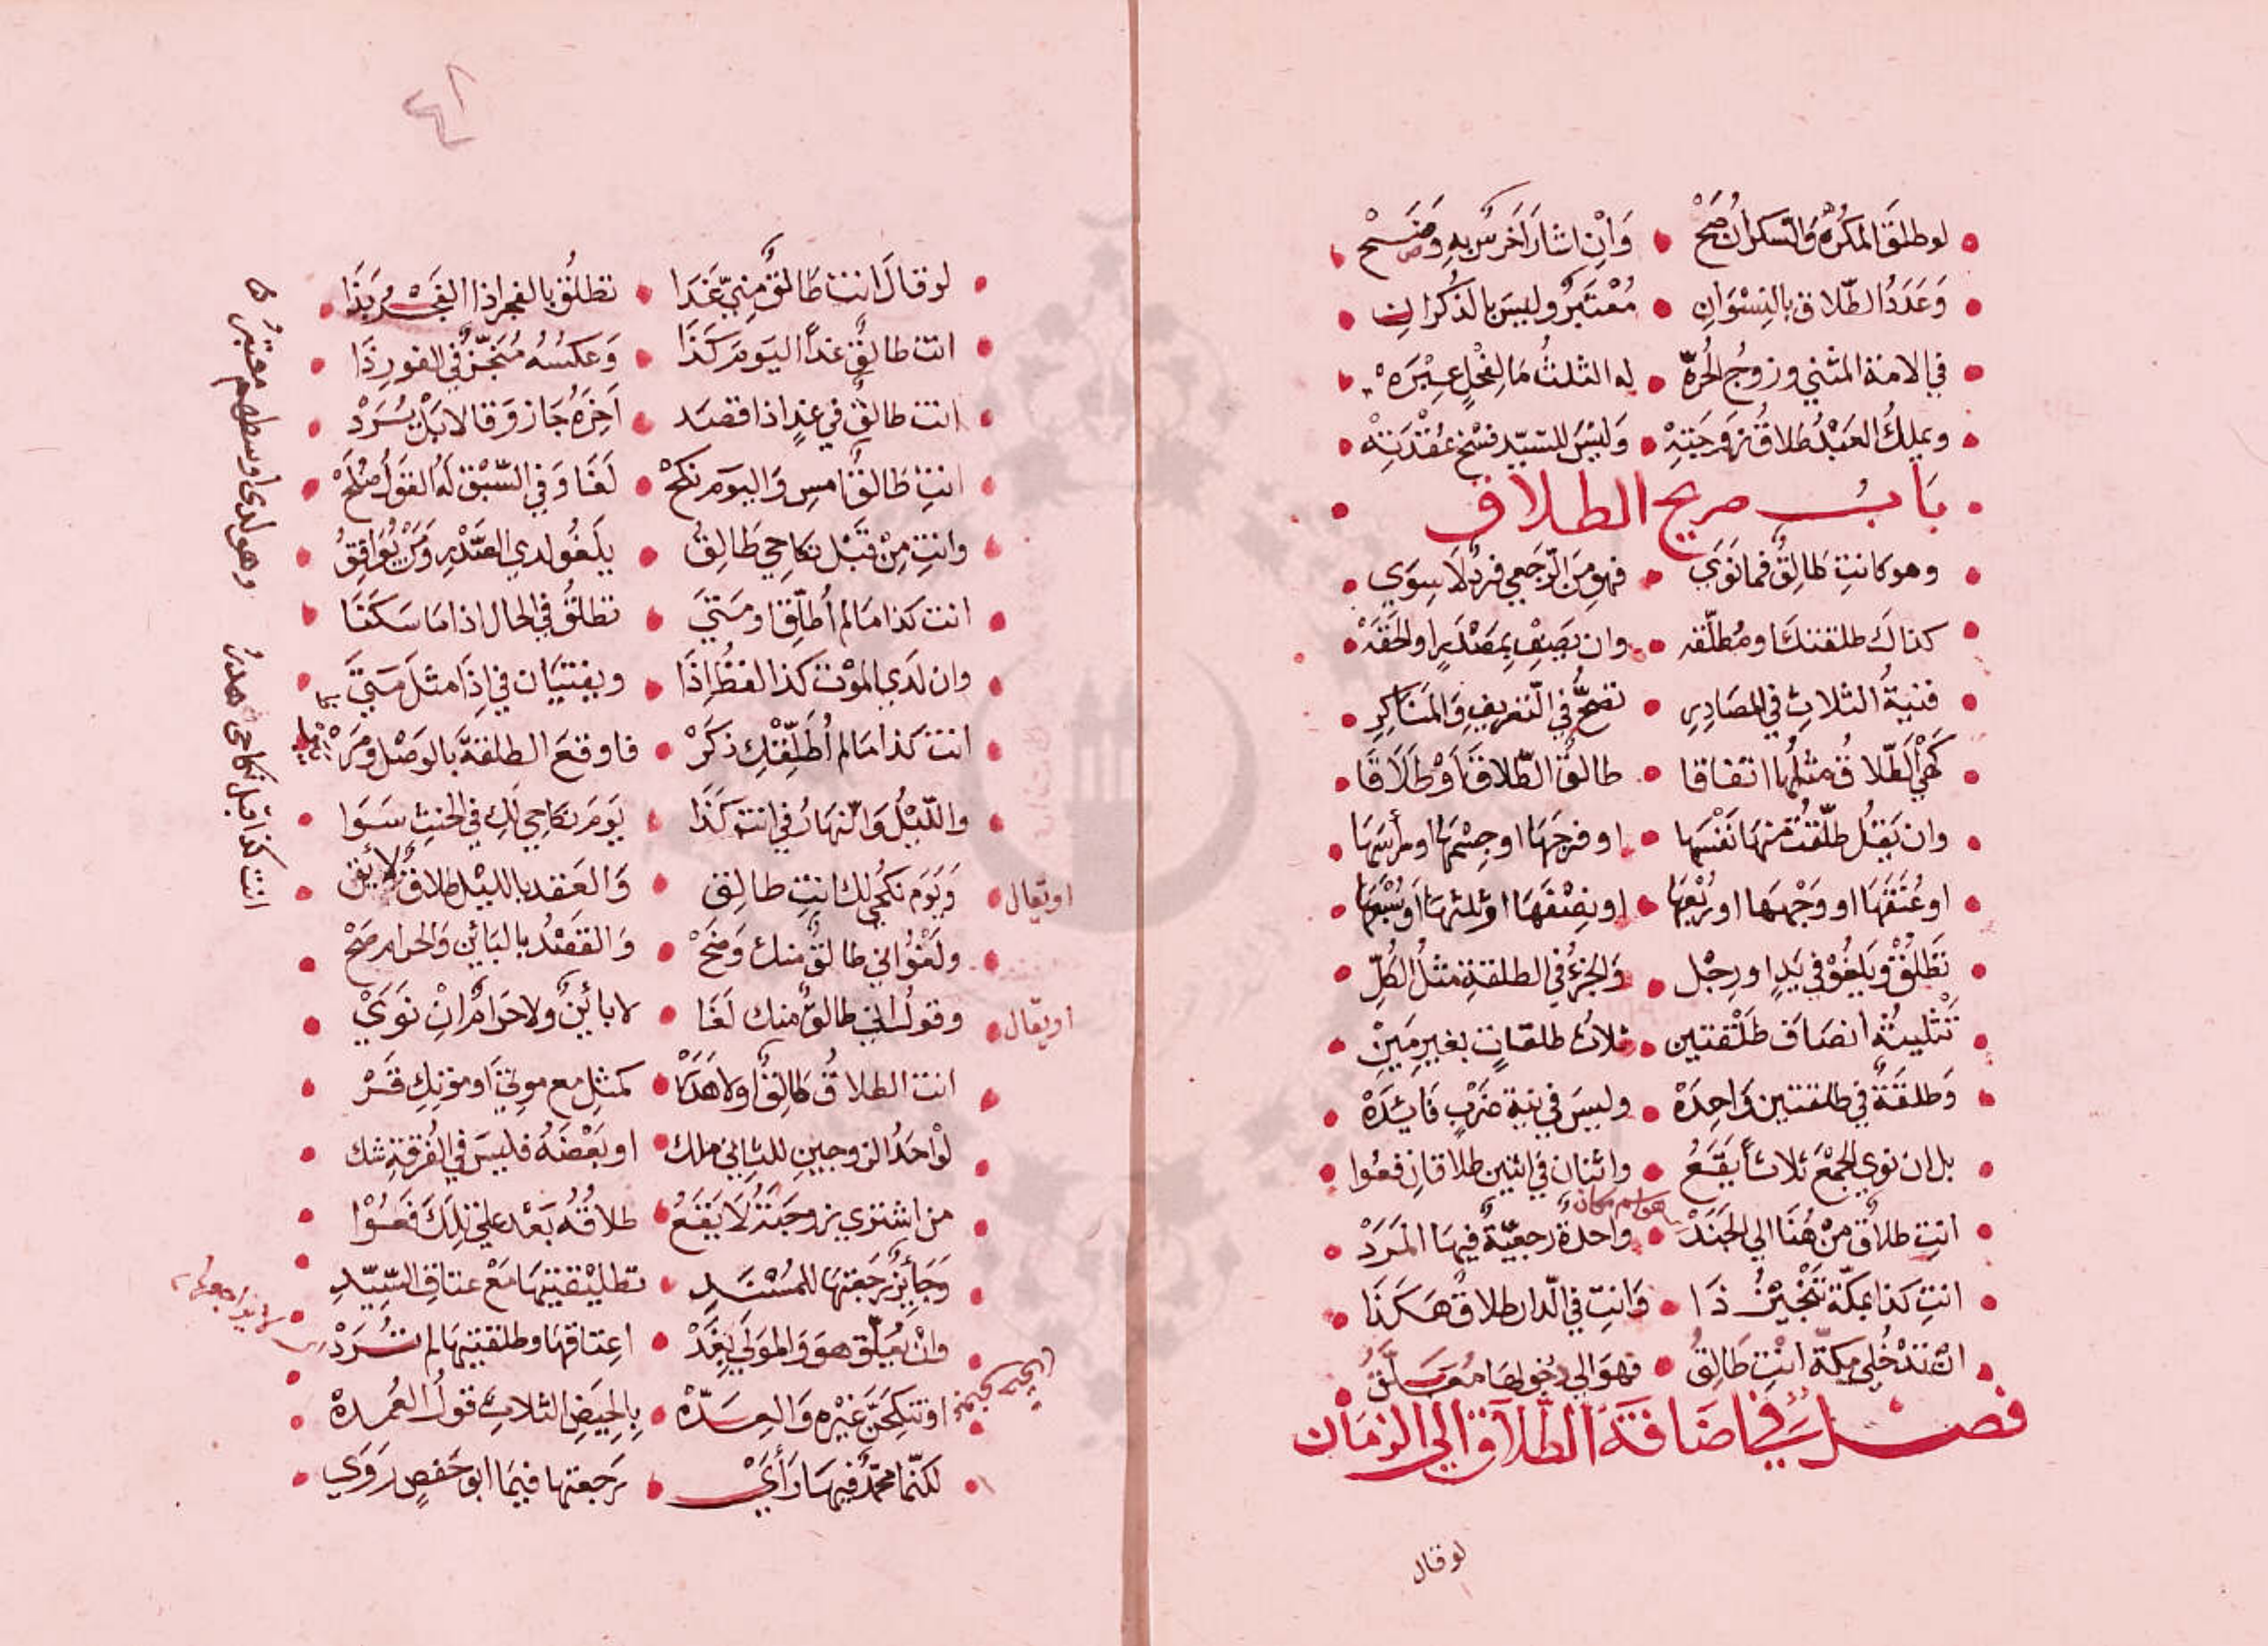 لو طلق المكره والسكران صح وان اشار اخرس به وضح
وَعَدَدُ الطّلاق بالنِسْوَانِ مُعْتَبَرٌ وليسَ بالذُكرانِ
في الامة المثنى وزوجُ الحُرّة له الثلثُ مَا لِفحْلٍ غيْرَه
ويملِكُ العَبْدُ طلاقُ زوجَتِهْ وَليْسَ للسّيّد فسْخ عُقْدَتِهْ
بَابُ صريح الطلاق
وهو كانتِ طَالِقٌ فما نَوَي فهو مِنَ الرّجعي فردٌ لا سِوَي
كذاك طلقتكَ او مُطلّقه وان يَصِفْ بِمصْدَرٍ او الحقَهْ
فنيةُ الثلاثِ في المصَادِرِ تصحُّ في التّعريفِ وَالمنَاكِرِ
كَهْيَ الطّلاقُ مثلُها اتفاقا طالقٌ الطّلاقَ اَوْ طلَاقَا
وان يَقُل طلّقتُ منها نَفْسَها او فرجَهَا او جِسْمَهَا او رأسَهَا
او عُنقَهَا او وَجْهَهَا او رُبْعَهَا او نِصْفَهَا او ثلثهَا اَو سُبْعَهَا
تَطْلُقْ ويَلغُوْ في يَدٍ او رِجْل وَالجزءُ في الطلقةِ مثلُ الكُلِّ
تَثْليثُهُ انصَافَ طَلْقتين ثلاث طلقاتٍ بغيرِ مَيْنِ
وَطلقَةٌ في طلقتين وَاحِدَهْ وليسَ في نية ضَرْبٍ فَايِدَهْ
بل ان نوي الجمْعَ ثلاثاً يقَعُ واثنان في اثنين طلاقانِ فعُوا
هو اسم مكان
انتِ طلاقٌ مِنْ هُنَا الي الجَنَدْ واحدةٌ رجعيّةٌ فيهَا المَرَدْ
انتِ كذا بمكّة تَنْجيزُ ذَا وَانتِ في الدّار طلاقٌ هَكَذَا
ان تَدْخُلي مكّة انْتِ طَالِقُ فهوَ الي دُخولهَا مُعَلَّقُ
فصل في اضَافَة الطّلاق الي الزمَان
لو قال
٤١
لو قالَ انت طَالقٌ مِنيّ غَدَا تطلُقُ بالفجر اذا الفَجْرُ بَدَا
انت طالقٌ غداً اليَومَ كَذَا وَعكسُهُ مُنَجّزٌ في الفور ذَا
انت طالقٌ في غدٍ اذا قصَد آخِرَهُ جَاز وَقالا بَلْ يُرَدْ
انتِ طَالقٌ امسِ وَاليومَ نكَحْ لَغَا وَفي السَّبْقِ لَهُ القَوْلُ صَلَحْ
وانتِ مِنْ قَبْل نكاحِي طَالِقُ يلغُو لدي العَقْدِ وَمَنْ يُوَافِقُ
انت كذا مَا لم اُطلّق او مَتيَ تطلقُ في الحال اذا مَا سَكَتَا
وان لَدَي الموْت كَذَا لفظ اِذَا ويفتيَان في اِذَا مثلَ مَتيَ
انت كذا مَا لم اُطَلِّقْكِ ذكَرْ فاوقعَ الطلقةَ بالوَصْل
واللّيْلُ وَالنهَارُ في انت كَذَا يَومَ نكاحِي لكِ في الحنثِ سَوَا
وَيَومَ نكحِي لك انتِ طالِق وَالعَقد بالليْل طلاقٌ لائق
او يقال
ولَغْوٌ اني طالقٌ منك وَضحْ وَالقصْدُ بالبَائن وَالحرام صَحْ
وقولُ اني طالقٌ منك لَغَا لا بائنٌ ولا حَرَامٌ انْ نَوَيْ
او يقال
انت الطلاقُ طالِقٌ اولا هَدَرْ كمثلِ مع موتيَ او موتِكِ قَرْ
لوْ احَدُ الزوجين للثاني ملك او بَعْضَهُ فليسَ في الفُرقةِ شك
من اشتري زوجَتَهُ لا يَقعُ طلاقُهُ بَعْد علي تِلكَ فَعُوْا
وَجَائِزٌ رَجعَتهَا للمُسْنَدِ تطليْقتيْهَا مَعْ عتاقِ السّيّدِ
وانْ يُعلّق هوَ وَالموَلي بِغَدْ اعتاقهَا وطلقتيْهَا لم تُرَدْ
او تنكِحَنّ غيْره وَالعِدّهْ بالحِيَضِ الثلاثِ قولُ العُمدهْ
لكنّما محمّدٌ فيهَا رَأَيْ رَجعتها فيمَا ابو حَفصٍ رَوَي
وهو لدي اوسطهم معتبرُ
انت كذا قبل نكاحي هدرُ